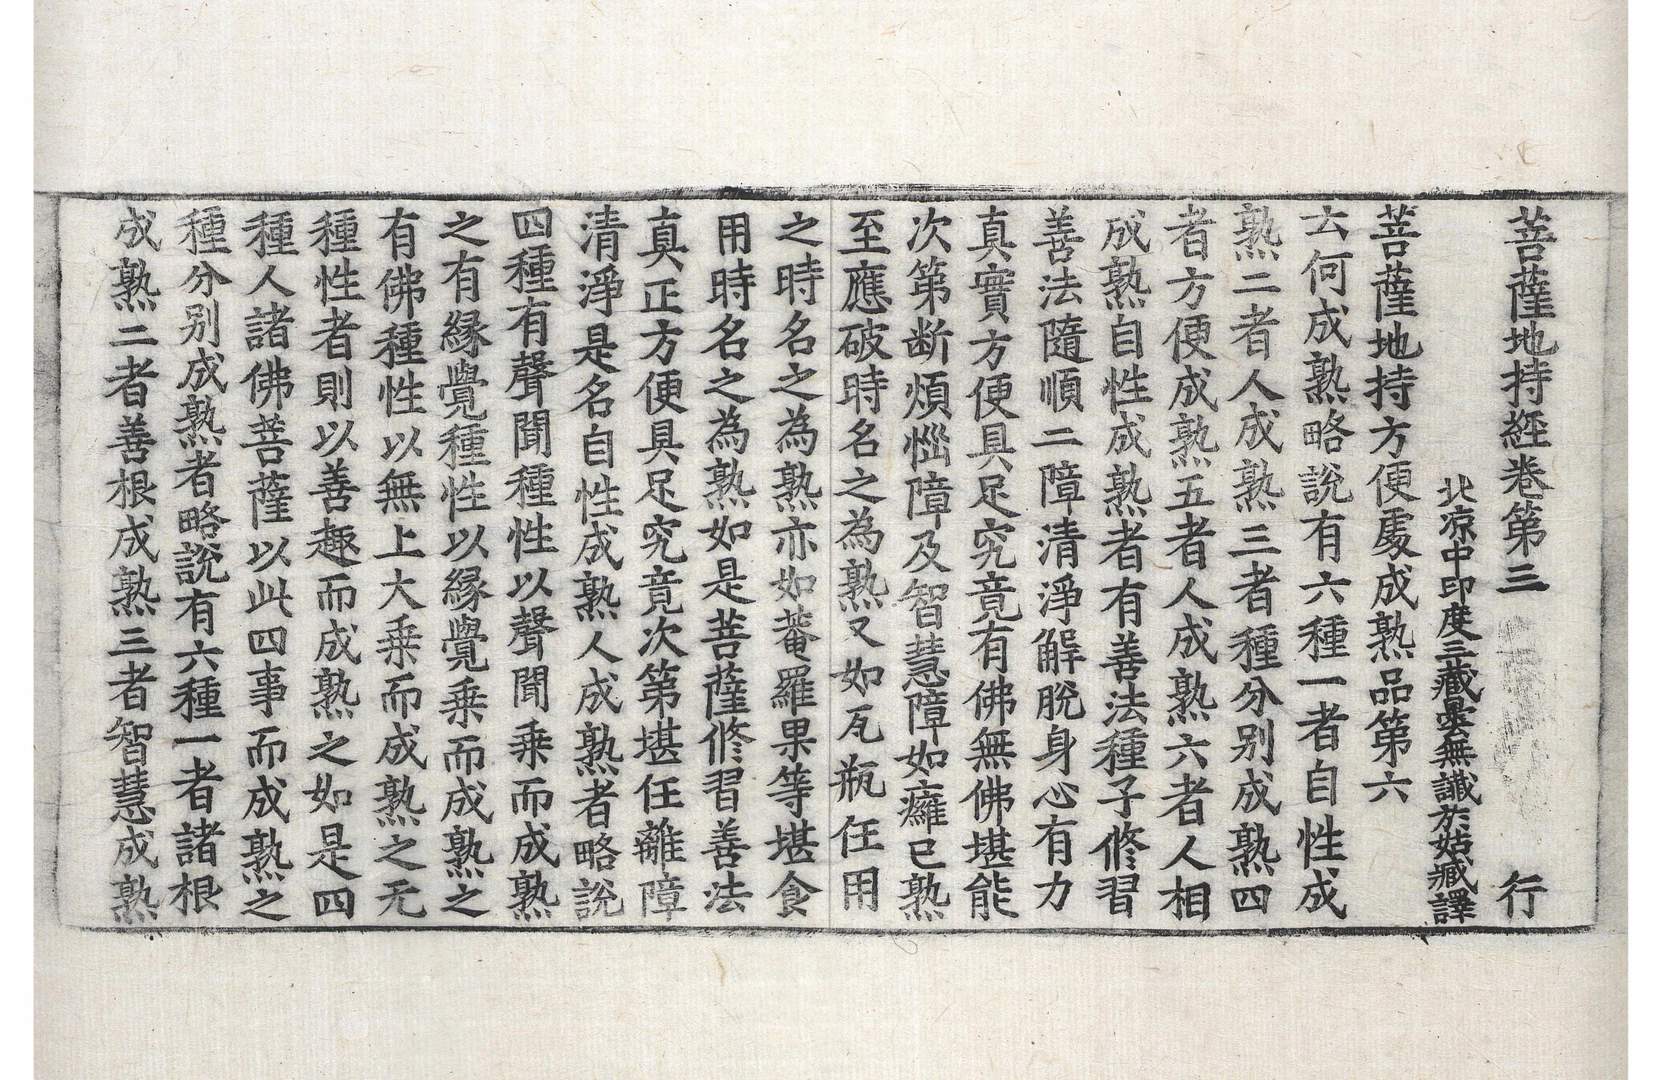 菩薩地持經卷第三 行
北涼中印度三藏曇無讖於姑臧譯
菩薩地持方便處成熟品第六
云何成熟略說有六種一者自性成
熟二者人成熟三者種分别成熟四
者方便成熟五者人成熟六者人相
成熟自性成熟者有善法種子修習
善法隨順二障清淨解脫身心有力
真實方便具足究竟有佛無佛堪能
次第断煩惱障及智慧障如癰已熟
至應破時名之為熟又如瓦瓶任用
之時名之為熟亦如菴羅果等堪食
用時名之為熟如是菩薩修習善法
真正方便具足究竟次第堪任離障
清淨是名自性成熟人成熟者略說
四種有聲聞種性以聲聞乗而成熟
之有縁覺種性以縁覺乗而成熟之
有佛種性以無上大乗而成熟之无
種性者則以善趣而成熟之如是四
種人諸佛菩薩以此四事而成熟之
種分别成熟者略說有六種一者諸根
成熟二者善根成熟三者智慧成熟